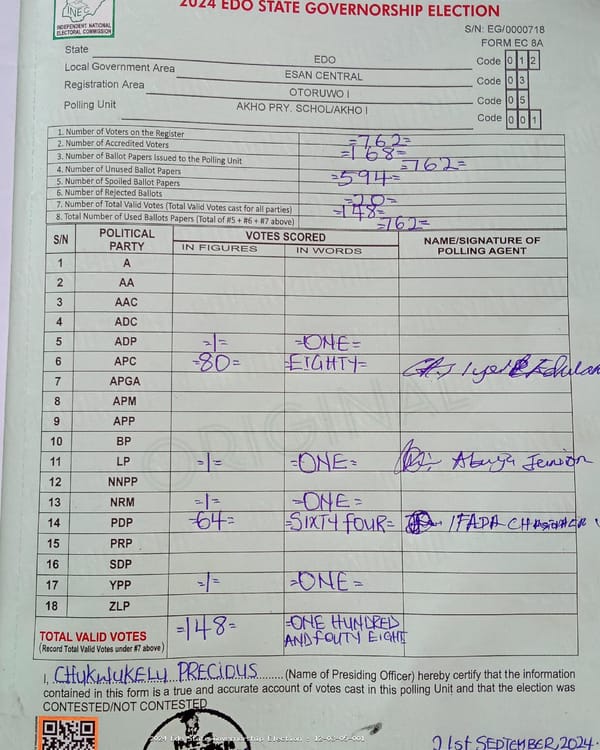 2024 EDO STATE GOVERNORSHIP ELECTION
INEC
INDEPENDENT NATIONAL
ELECTORAL COMMISSION
S/N: EG/0000718
FORM EC 8A
State EDO Code 0 1 2
Local Government Area ESAN CENTRAL Code 0 3
Registration Area OTORUWO I Code 0 5
Polling Unit AKHO PRY. SCHOL/AKHO I Code 0 0 1
1. Number of Voters on the Register =762=
2. Number of Accredited Voters =168=
3. Number of Ballot Papers Issued to the Polling Unit =762=
4. Number of Unused Ballot Papers =594=
5. Number of Spoiled Ballot Papers
6. Number of Rejected Ballots =20=
7. Number of Total Valid Votes (Total Valid Votes cast for all parties) =148=
8. Total Number of Used Ballots Papers (Total of #5 + #6 + #7 above) =762=
S/N POLITICAL PARTY VOTES SCORED NAME/SIGNATURE OF POLLING AGENT
IN FIGURES IN WORDS
1 A
2 AA
3 AAC
4 ADC
5 ADP =1= =ONE=
6 APC =80= =EIGHTY=
7 APGA
8 APM
9 APP
10 BP
11 LP =1= =ONE=
12 NNPP
13 NRM =1= =ONE=
14 PDP =64= =SIXTY FOUR=
15 PRP
16 SDP
17 YPP =1= =ONE=
18 ZLP
TOTAL VALID VOTES =148= =ONE HUNDRED
(Record Total Valid Votes under #7 above) AND FOUTY EIGHT
ORIGINAL
I, CHUKWUKELU PRECIOUS (Name of Presiding Officer) hereby certify that the information
contained in this form is a true and accurate account of votes cast in this polling Unit and that the election was
CONTESTED/NOT CONTESTED
2024 Edo State Governorship Election - 12-03-05-001
21st SEPTEMBER, 2024